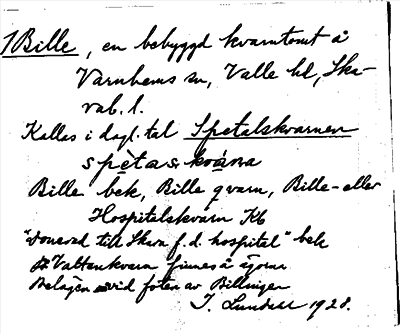 1 Bille, en bebyggd kvarntomt å
Varnhems sn, Valle hd, Ska-
rab. l.
Kallas i dagl. tal Spetalskvarnen
spètas kvána
Bille bek, Bille qvarn, Bille- eller
Hospitalskvarn Kb
"Donerad till Skara f.d. hospital" bek
Vattenkvarn finnes å ägorna
Belägen vid foten av Billingen
I. Lundell 1928.